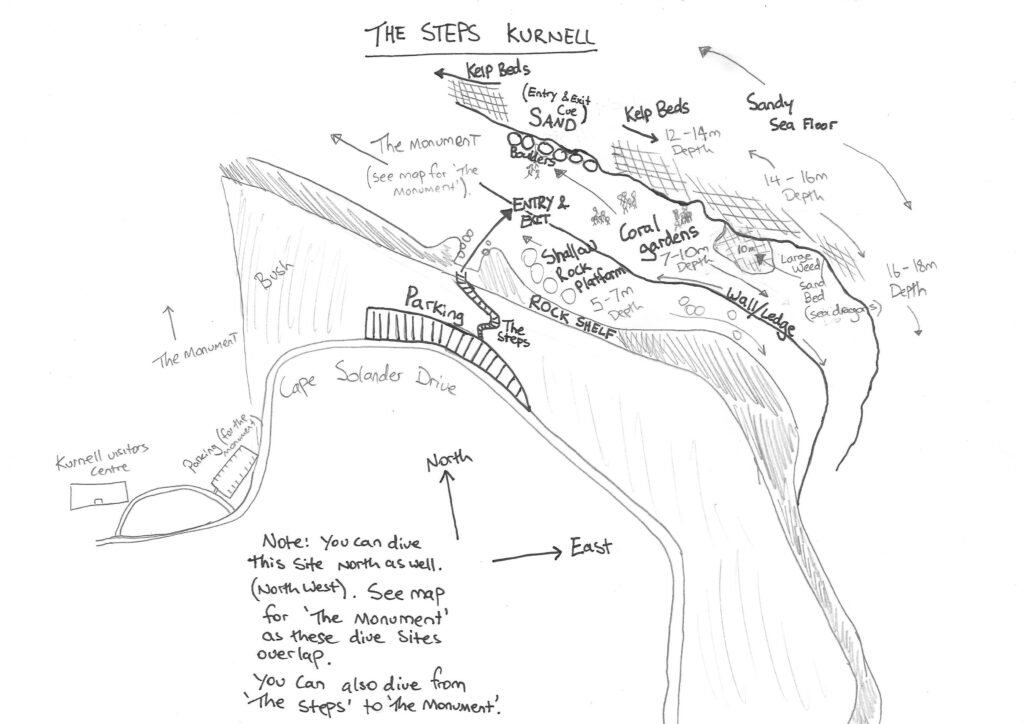 THE STEPS KURNELL
Kelp Beds
(Entry & Exit
Cue)
SAND
Kelp Beds
12-14m
Depth
Sandy
Sea Floor
The Monument
(see map for 'The
Monument').
Boulders
14-16m
Depth
ENTRY &
EXIT
Coral
gardens
7-10m
Depth
10m
Large
Weed/
Sand
Bed
(sea dragons)
16-18m
Depth
Shallow
Rock
Platform
5-7m
Depth
Wall/Ledge
ROCK SHELF
Bush
Parking
The
Steps
The Monument
Cape Solander Drive
Parking (for the
Monument)
Kurnell visitors
centre
North
East
Note: You can dive
this site North as well.
(North West). See map
for 'The Monument'
as these dive sites
overlap.
You can also dive from
'The Steps' to 'The Monument'.